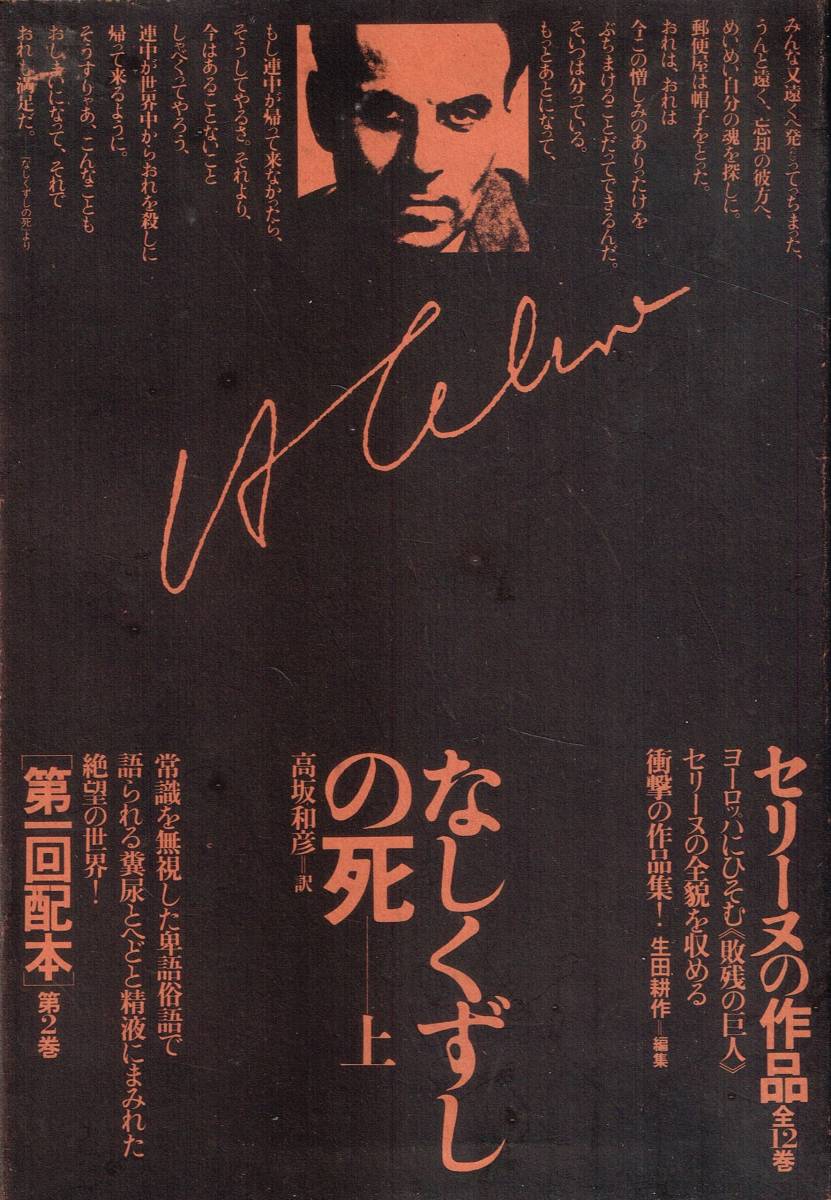 みんな又遠くへ発ってっちまった、
うんと遠く、忘却の彼方へ、
めいめい自分の魂を探しに。
郵便屋は帽子をとった。
おれは、おれは
今この憎しみのありったけを
ぶちまけることだってできるんだ。
そいつは分っている。
もっとあとになって、
もし連中が帰って来なかったら、
そうしてやるさ。それより、
今はあることないこと
しゃべくってやろう、
連中が世界中からおれを殺しに
帰って来るように。
そうすりゃあ、こんなことも
おしまいになって、それで
おれも満足だ。
「なしくずしの死」より
L F Celine
セリーヌの作品 全12巻
ヨーロッパにひそむ《敗残の巨人》
セリーヌの全貌を収める
衝撃の作品集! 生田耕作=編集
なしくずし
の死――上
高坂和彦=訳
常識を無視した卑語俗語で
語られる糞尿とへどと精液にまみれた
絶望の世界!
[第一回配本]第2巻